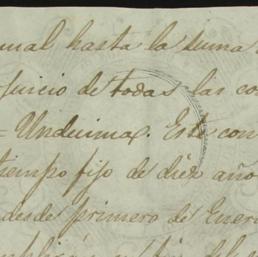 hasta la suma
juicio de todas las co
= Undecima. Este con
tiempo fijo de diez año
desde primero de Ener